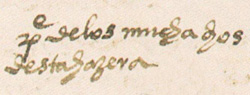 pᵉ delos muchachos
desta hazera